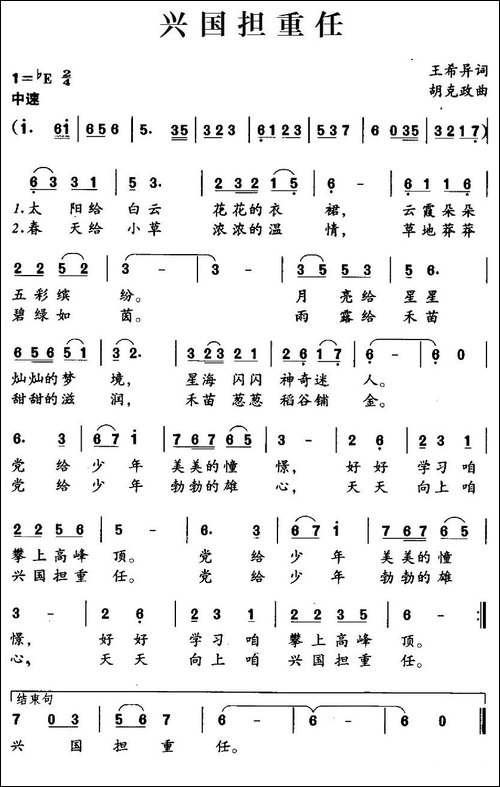 兴国担重任
1=♭E 2/4
中速
王希异词
胡克政曲
(i. 6i | 656 | 5. 35 | 323 | 6123 | 537 | 6035 | 3217)
6 3 3 1 | 5 3. | 2 3 2 1 5 | 6 - | 6 1 1 6
1.太 阳给 白云 花花的衣 裙, 云霞朵朵
2.春 天给 小草 浓浓的温 情, 草地莽莽
2 2 5 2 | 3 - | 3 - | 3 5 5 3 | 5 6.
五彩缤 纷。 月 亮给 星星
碧绿如 茵。 雨 露给 禾苗
6 5 6 5 5 1 | 3 2. | 3 2 3 2 1 | 2 6 1 7 | 6 - | 6 0
灿灿的梦 境, 星海闪闪 神奇迷 人。
甜甜的滋 润, 禾苗葱葱 稻谷铺 金。
6. 3 | 6 7 i | 7 6 7 6 5 | 3 - | 2 6 | 2 3 1
党 给 少 年 美美的憧 憬, 好 好 学习 咱
党 给 少 年 勃勃的雄 心, 天 天 向上 咱
2 2 5 6 | 5 - | 6. 3 | 6 7 i | 7 6 7 6 5
攀上高峰 顶。 党 给 少 年 美美的憧
兴国担重 任。 党 给 少 年 勃勃的雄
3 - | 2 6 | 2 3 1 | 2 2 3 5 | 6 - :||
憬, 好 好 学习 咱 攀上高峰 顶。
心, 天 天 向上 咱 兴国担重 任。
结束句
7 0 3 | 5 6 7 | 6 - | 6 - | 6 0 :||
兴 国 担 重 任。